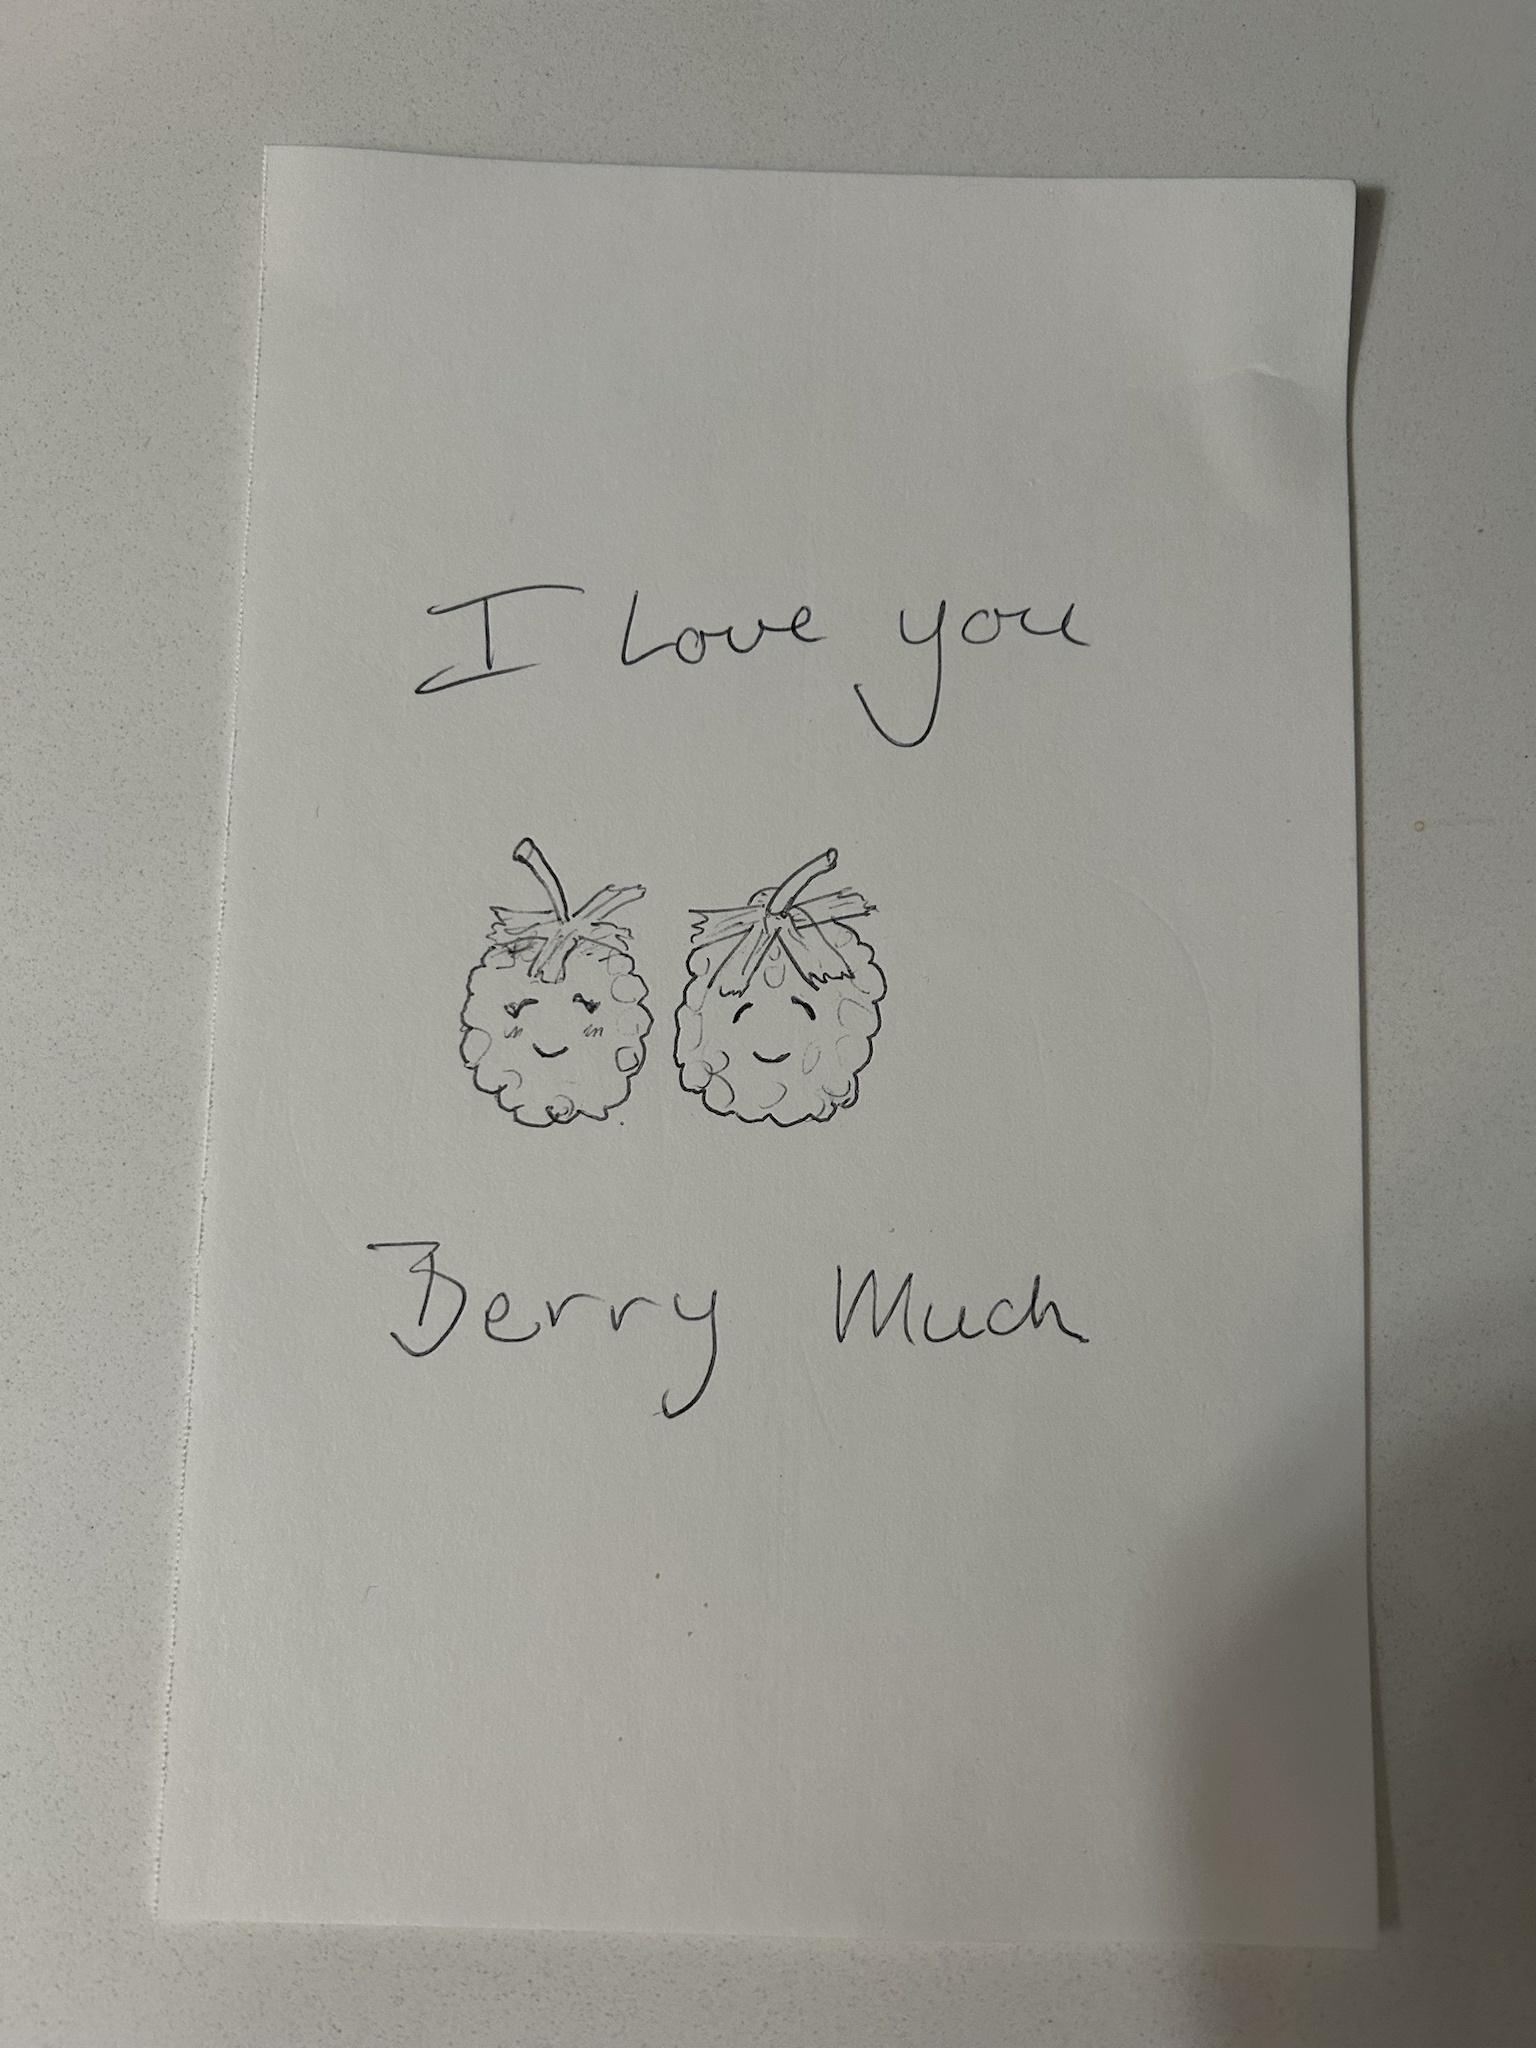 I Love you
Berry Much